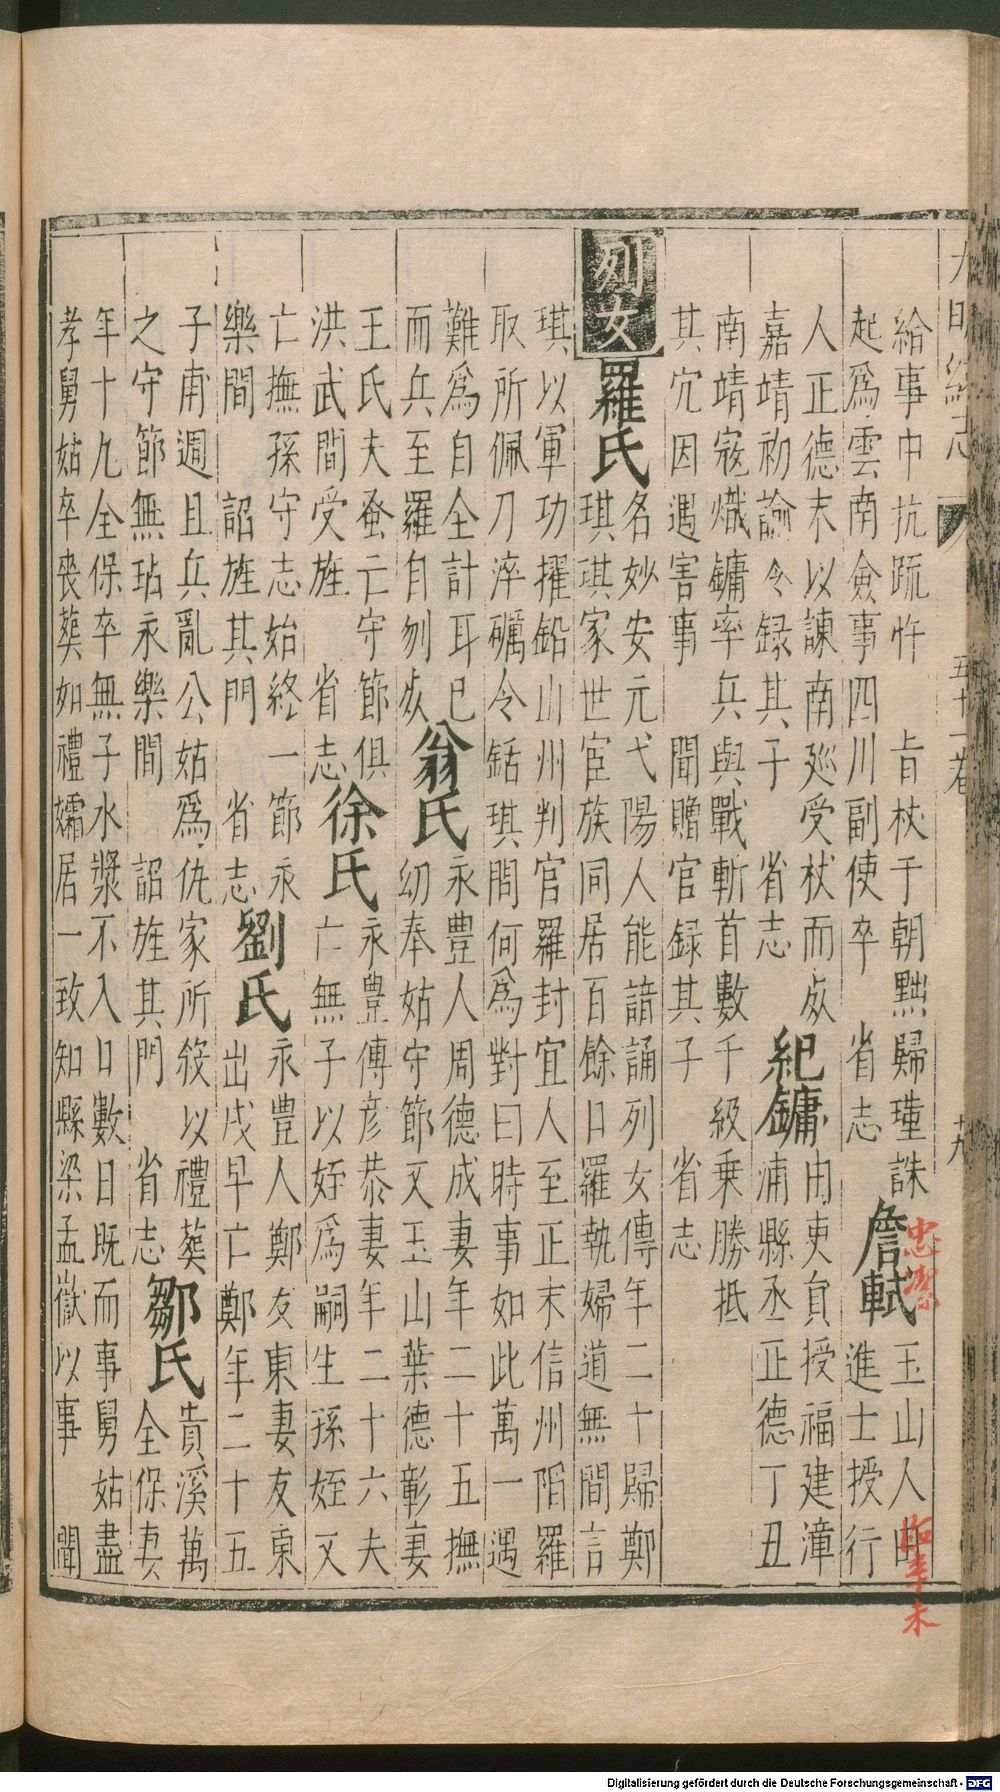 五十一卷 十九
給事中抗䟽忤 旨杖于朝黜歸瑾誅
起爲雲南僉事四川副使卒 省志
詹軾
玉山人由
進士授行
人正德末以諫南廵受杖而死
嘉靖初諭令録其子 省志
紀鏞
由吏員授福建漳
浦縣丞正德丁丑
南靖寇熾鏞率兵與戰斬首數千級乗勝抵
其穴因遇害事 聞贈官録其子 省志
列女
羅氏
名妙安元弋陽人能諳誦列女傳年二十歸鄭
琪琪家世宦族同居百餘口羅執婦道無間言
琪以軍功擢鉛山州判官羅封宜人至正末信州陷羅
取所佩刀淬礪令銛琪問何爲對曰時事如此萬一遇
難爲自全計耳已
而兵至羅自刎死
翁氏
永豐人周德成妻年二十五撫
幼奉姑守節又玉山葉德彰妻
王氏夫蚤亡守節俱
洪武間受旌 省志
徐氏
永豐傅彦恭妻年二十六夫
亡無子以姪爲嗣生孫姪又
亡撫孫守志始終一節永
樂間 詔旌其門 省志
劉氏
永豐人鄭友東妻友東
出戍早亡鄭年二十五
子甫週且兵亂公姑爲仇家所殺以禮葬
之守節無玷永樂間 詔旌其門 省志
鄒氏
貴溪萬
全保妻
年十九全保卒無子水漿不入口數日既而事舅姑盡
孝舅姑卒喪葬如禮孀居一致知縣梁孟嶽以事 聞
忠潔
Digitalisierung gefördert durch die Deutsche Forschungsgemeinschaft - DFG